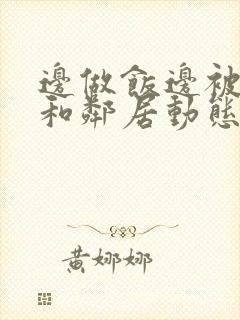 邊做飯邊被
和鄰居動態
黃娜娜